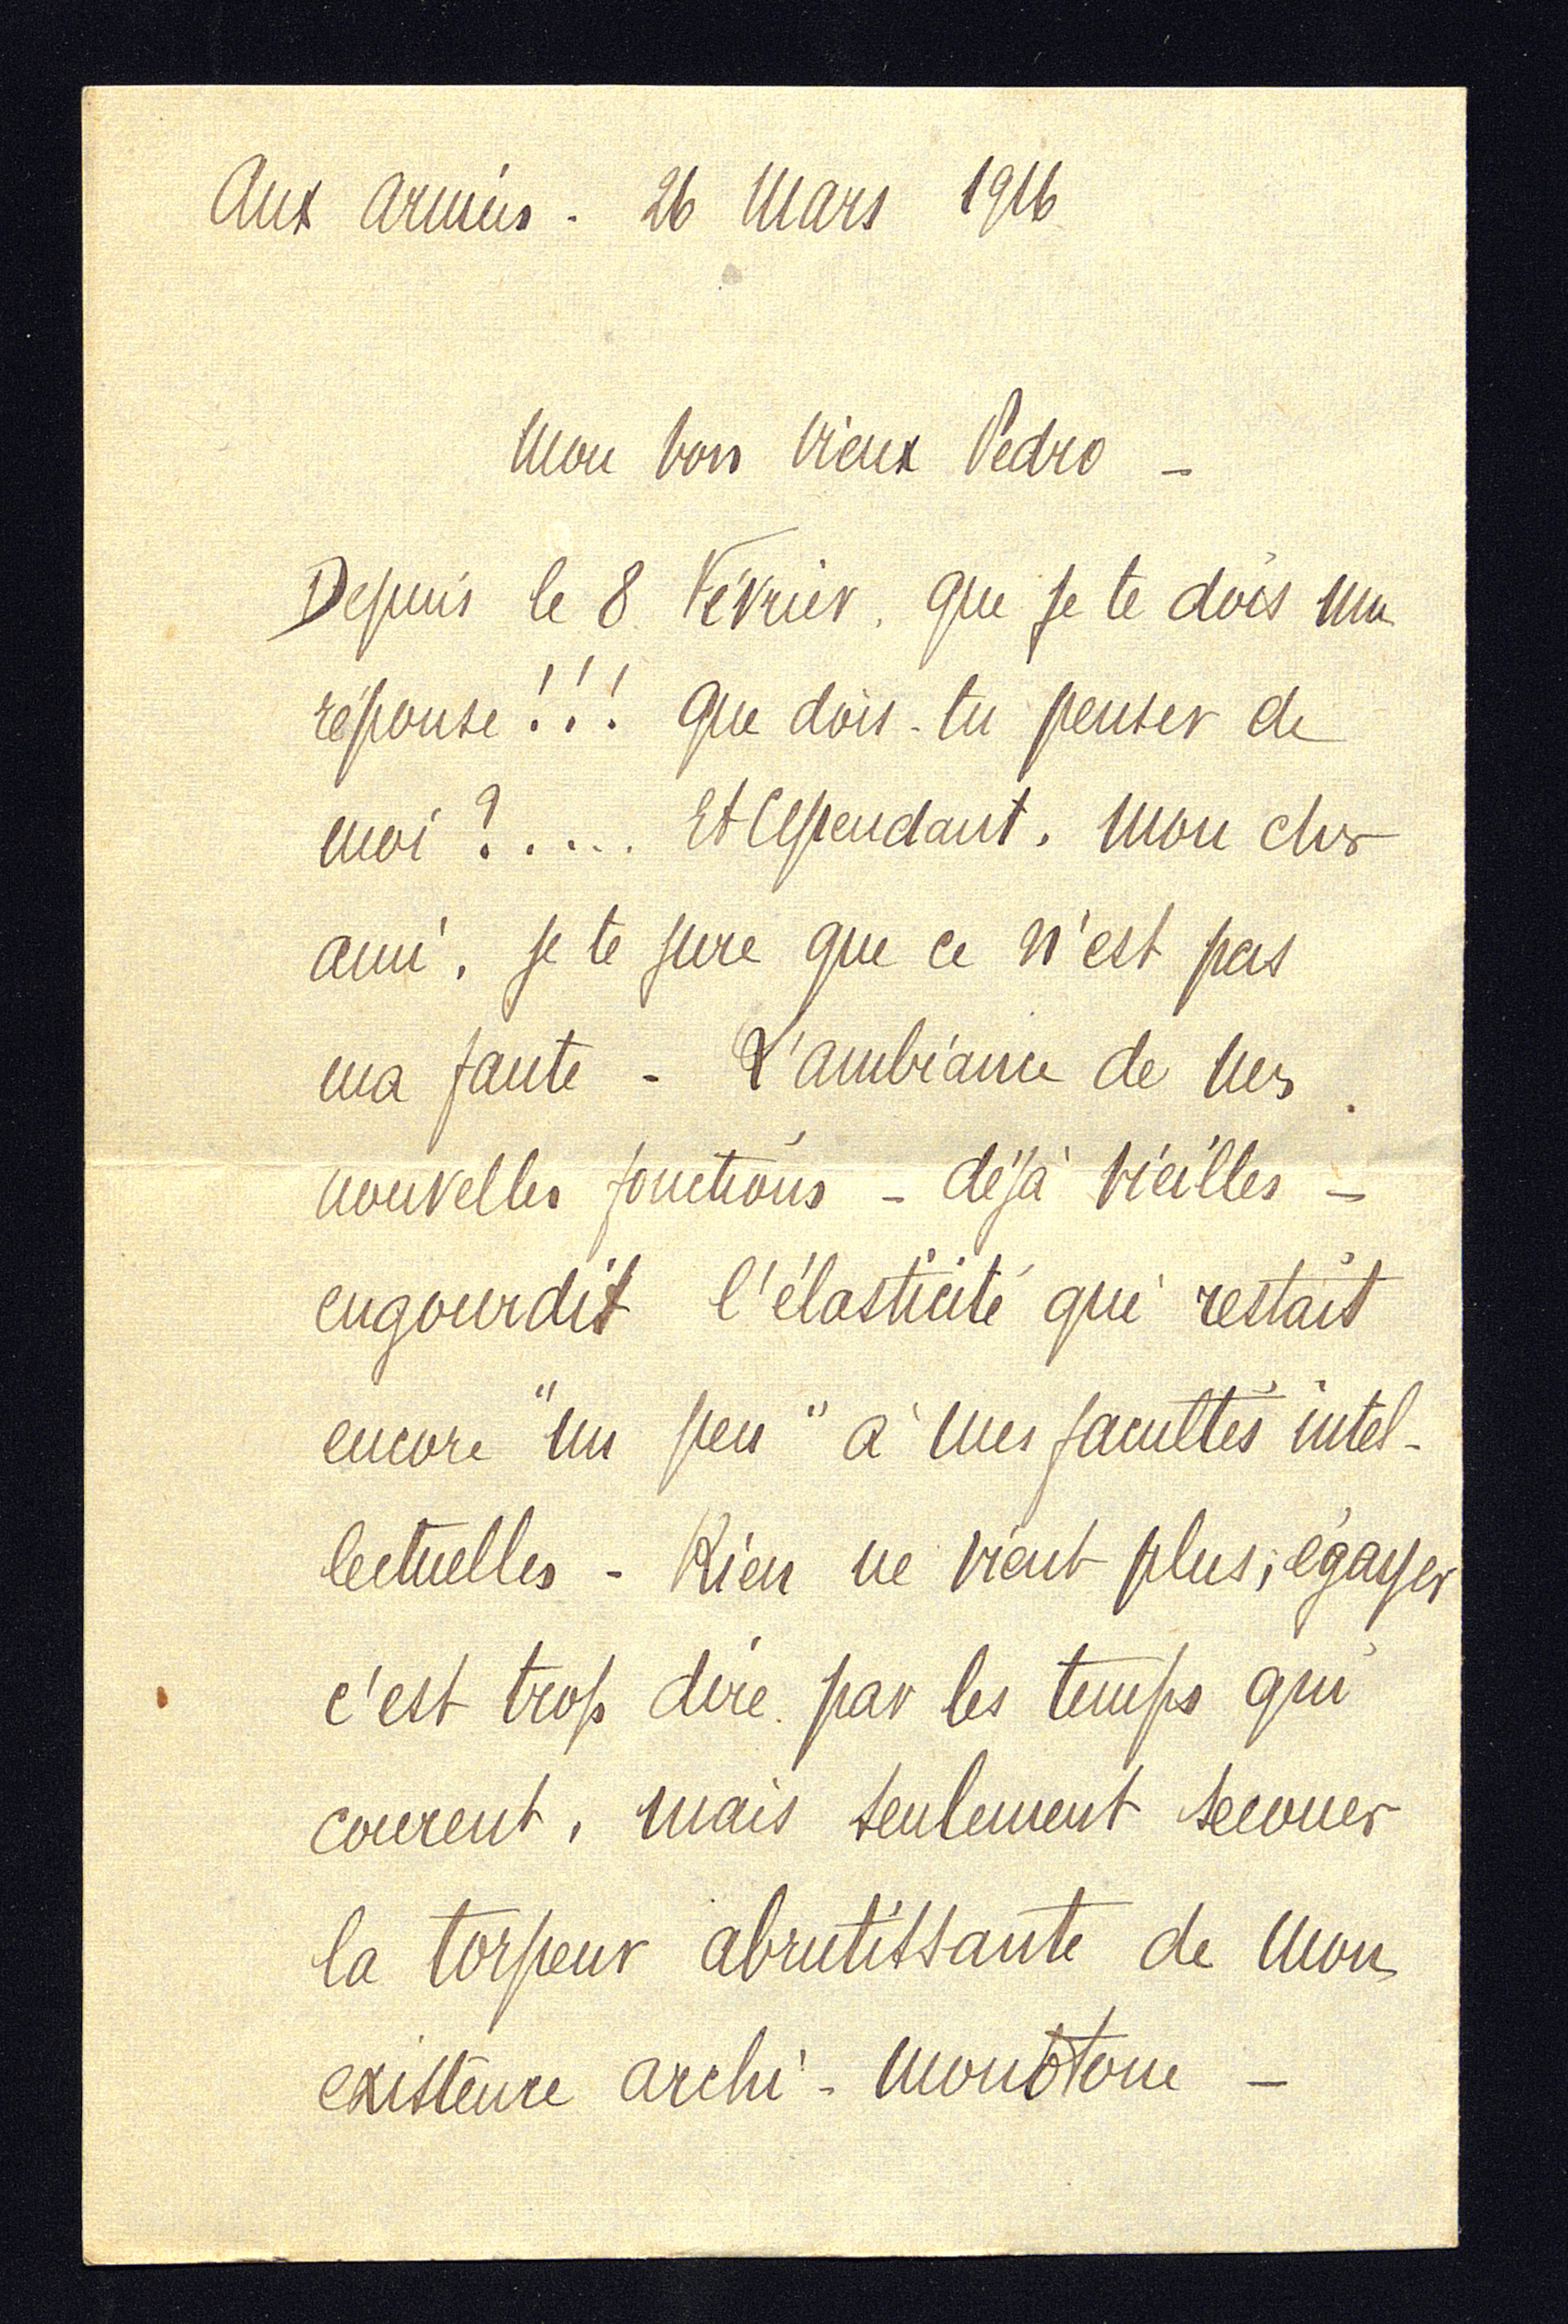 Aux Armées - 26 Mars 1916
Mon bon vieux Pedro -
Depuis le 8 Février, que je te dois une
réponse !!! Que dois-tu penser de
moi ?.... Et cependant, mon cher
ami, je te jure que ce n'est pas
ma faute - L'ambiance de mes
nouvelles fonctions - déjà vieilles -
engourdit l'élasticité qui restait
encore "un peu" à mes facultés intel-
lectuelles - Rien ne vient plus, égayer
c'est trop dire par les temps qui
courent, mais seulement secouer
la torpeur abrutissante de mon
existence archi-monotone -